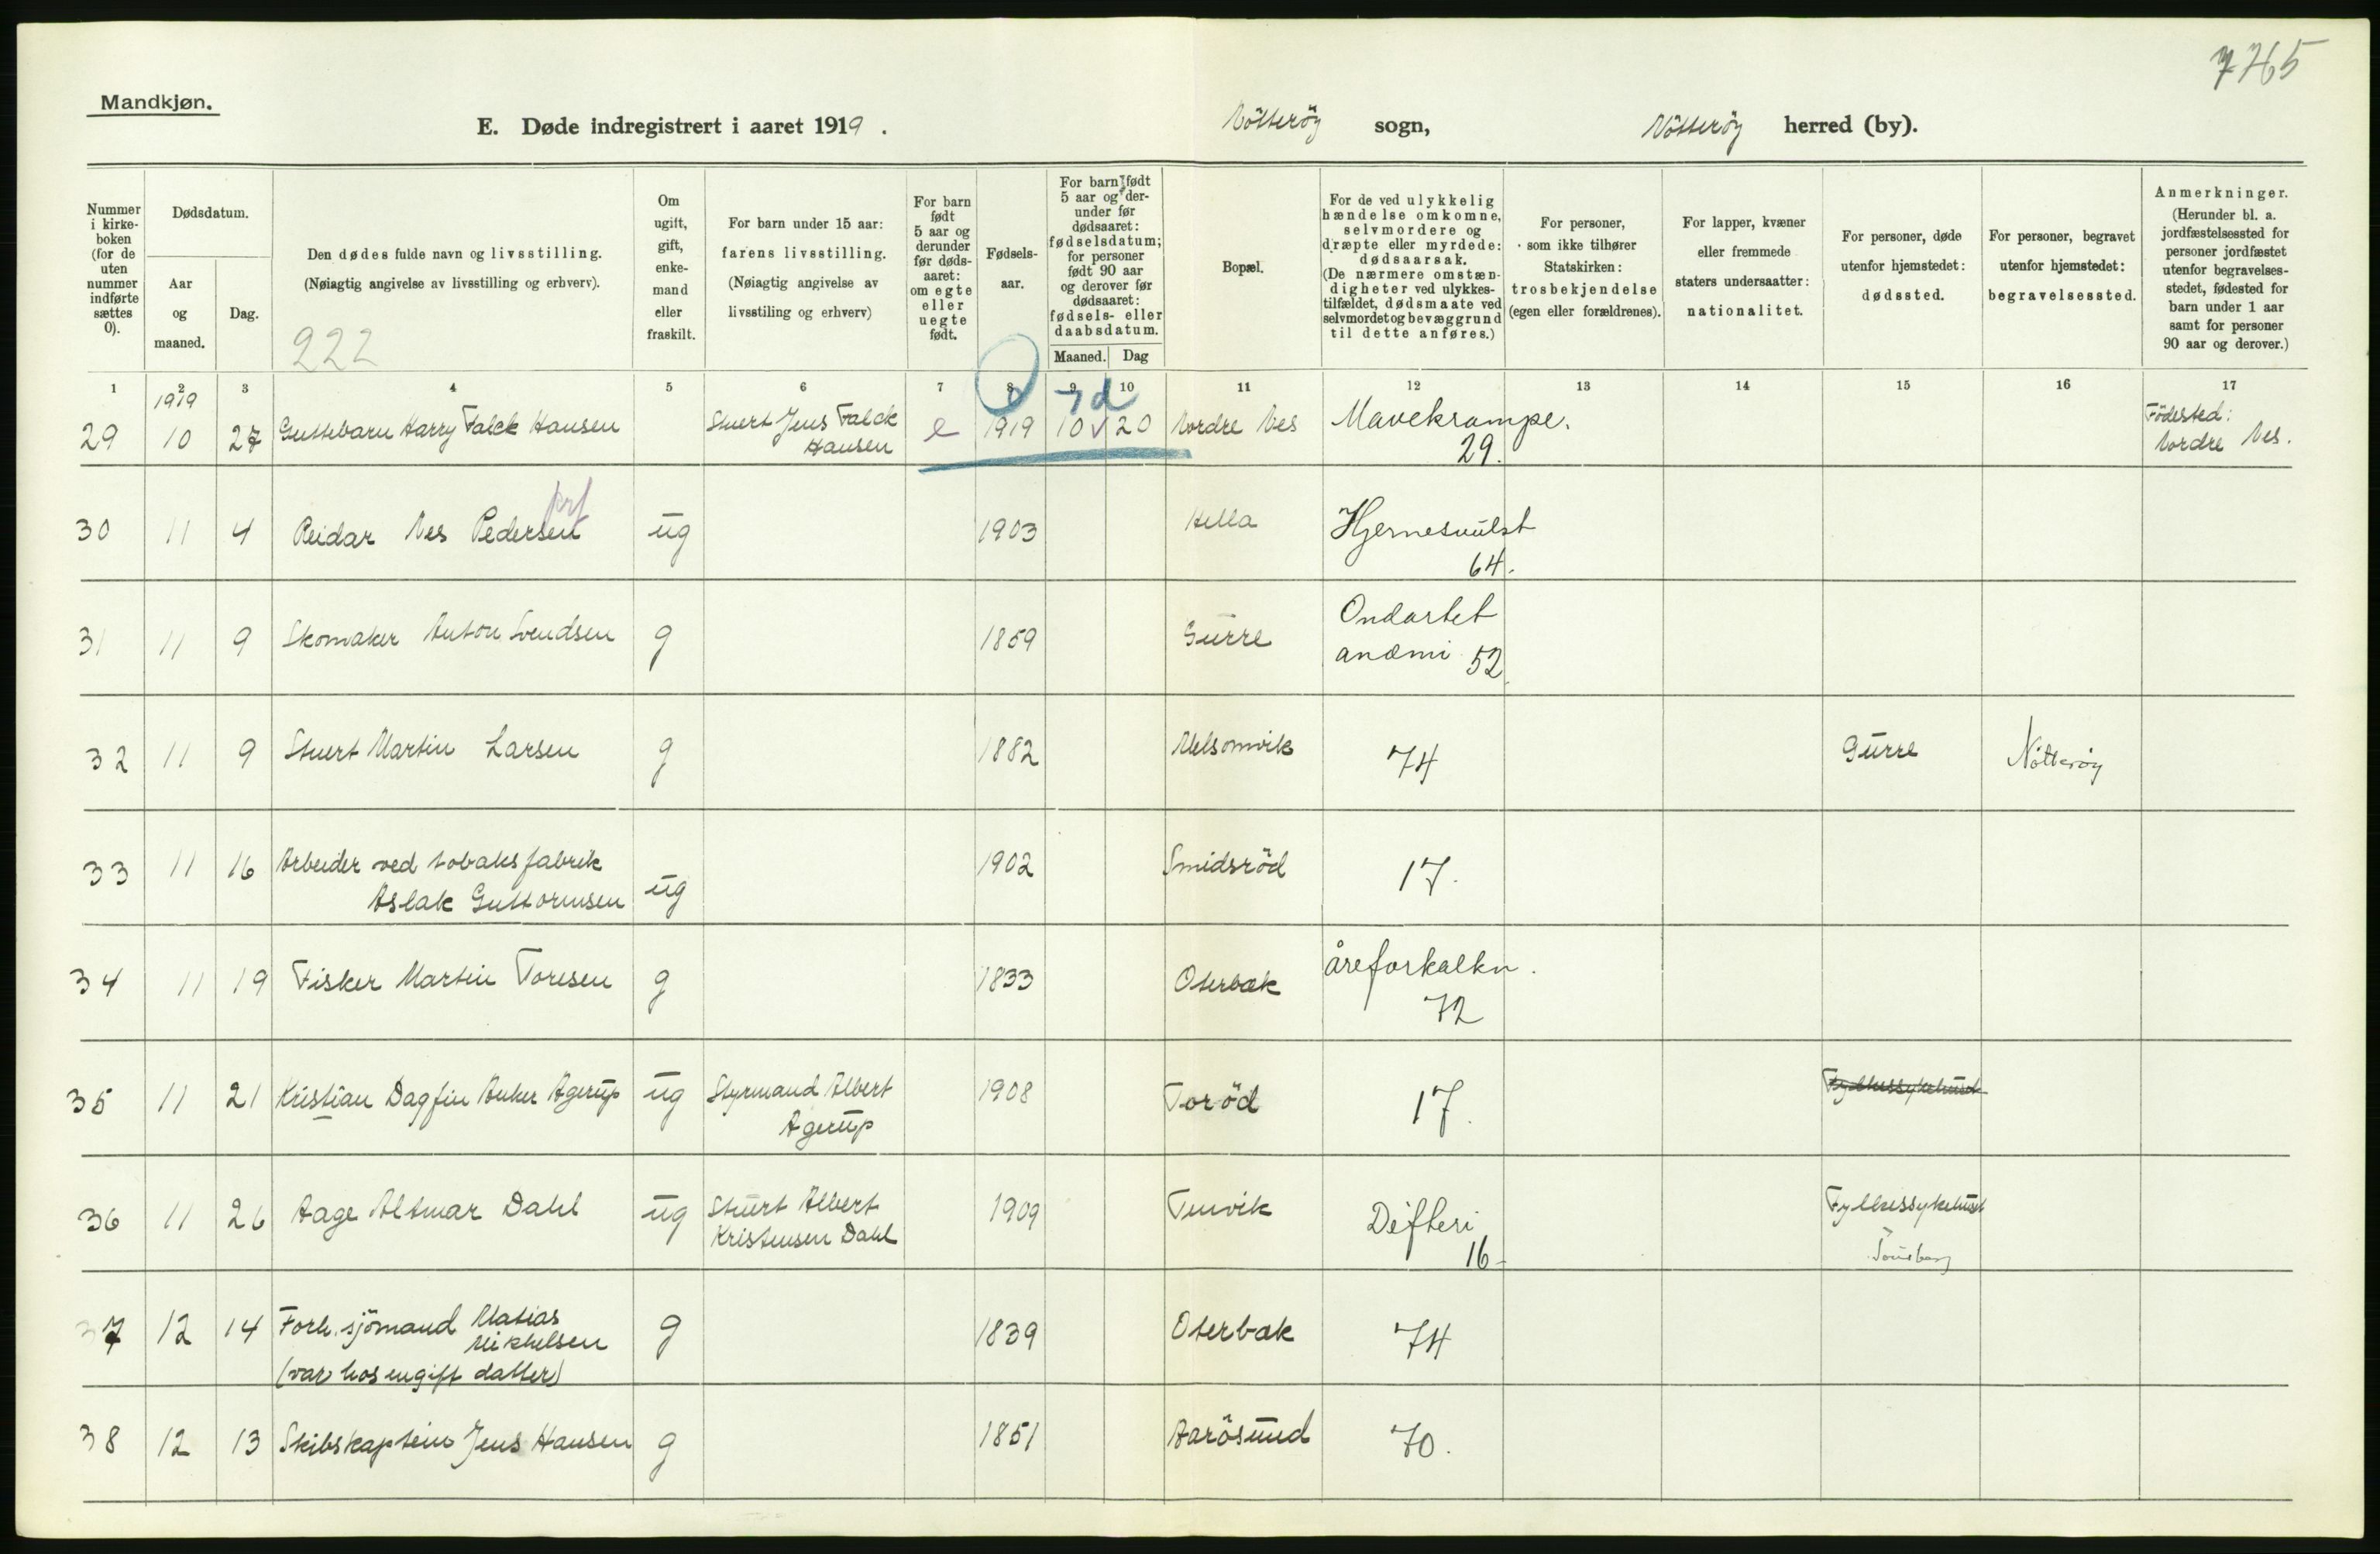 7765
Mandkjøn.
E. Døde indregistrert i aaret 1919.
Nötteröy sogn, Nötteröy herred (by).
Nummer i kirke-boken (for de uten nummer indførte sættes 0).
Dødsdatum.
Aar og maaned.
Dag.
Den dødes fulde navn og livsstilling.
(Nøiagtig angivelse av livsstilling og erhverv).
222
Om ugift, gift, enke-mand eller fraskilt.
For barn under 15 aar: farens livsstilling.
(Nøiagtig angivelse av livsstiling og erhverv)
For barn født 5 aar og derunder før døds-aaret: om egte eller uegte født.
Fødsels-aar.
For barn født 5 aar og der-under før dødsaaret: fødselsdatum; for personer født 90 aar og derover før dødsaaret: fødsels- eller daabsdatum.
Maaned. Dag
Bopæl.
For de ved ulykkelig hændelse omkomne, selvmordere og dræpte eller myrdede: dødsaarsak.
(De nærmere omstæn-digheter ved ulykkes-tilfældet, dødsmaate ved selvmordet og bevæggrund til dette anføres.)
For personer, som ikke tilhører Statskirken: trosbekjendelse (egen eller forældrenes).
For lapper, kvæner eller fremmede staters undersaatter: nationalitet.
For personer, døde utenfor hjemstedet: dødssted.
For personer, begravet utenfor hjemstedet: begravelsessted.
Anmerkninger.
(Herunder bl. a. jordfæstelsessted for personer jordfæstet utenfor begravelses-stedet, fødested for barn under 1 aar samt for personer 90 aar og derover.)
1 2 3 4 5 6 7 8 9 10 11 12 13 14 15 16 17
1919
7 d
29 10 27 Guttebarn Harry Falck Hansen Stuert Jens Falck Hansen e 1919 10 20 Nordre Nes Mavekrampe. 29. Födested: Nordre Nes.
30 11 4 Reidar Nes Pedersen ug 1903 Hella Hjernesvulst 64.
31 11 9 Skomaker Anton Svendsen g 1859 Gurre Ondartet anæmi 52
32 11 9 Stuert Martin Larsen g 1882 Melsomvik 74 Gurre Nötteröy
33 11 16 Arbeider ved tobaksfabrik Aslak Guttormsen ug 1902 Smidsröd 17.
34 11 19 Fisker Martin Toresen g 1833 Oterbæk åreforkalkn. 72
35 11 21 Kristian Dagfin Anker Agerup ug Styrmand Albert Agerup 1908 Toröd 17. Fylkessykehuset
36 11 26 Aage Altmar Dahl ug Stuert Albert Kristensen Dahl 1909 Tenvik Difteri 16- Fylkessykehuset Tönsberg
37 12 14 Forh. sjömand Matias Mikkelsen (var hos en gift datter) g 1839 Oterbæk 74
38 12 13 Skibskaptein Jens Hansen g 1851 Aarösund 70.